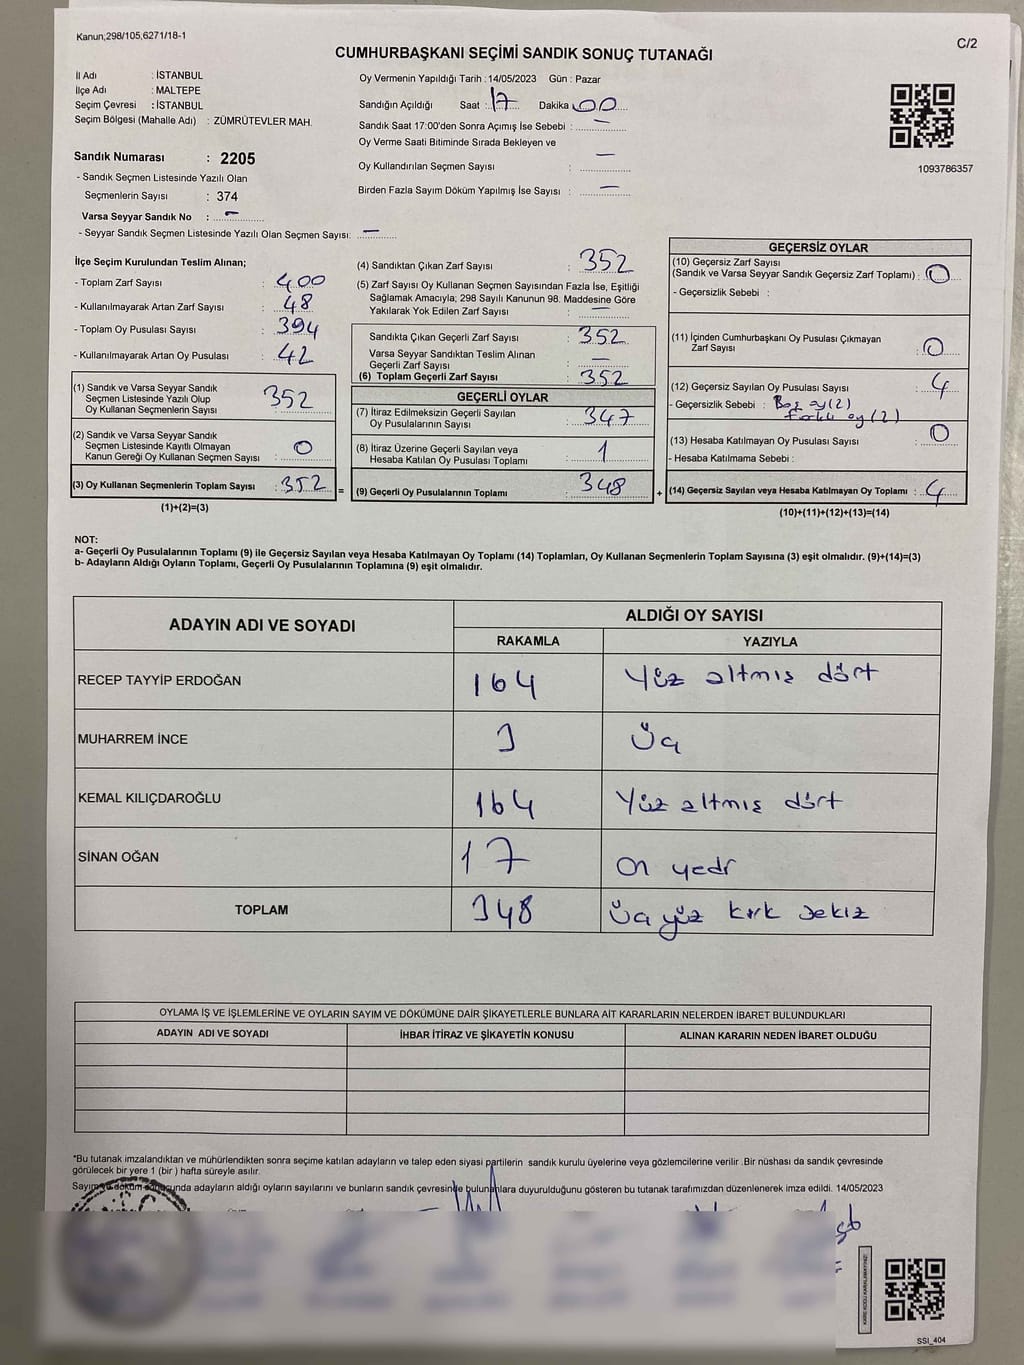 Kanun;298/105,6271/18-1
C/2
CUMHURBAŞKANI SEÇİMİ SANDIK SONUÇ TUTANAĞI
İl Adı : İSTANBUL
İlçe Adı : MALTEPE
Seçim Çevresi : İSTANBUL
Seçim Bölgesi (Mahalle Adı) : ZÜMRÜTEVLER MAH.
Sandık Numarası : 2205
- Sandık Seçmen Listesinde Yazılı Olan
Seçmenlerin Sayısı : 374
Varsa Seyyar Sandık No : —
- Seyyar Sandık Seçmen Listesinde Yazılı Olan Seçmen Sayısı: —
Oy Vermenin Yapıldığı Tarih : 14/05/2023 Gün : Pazar
Sandığın Açıldığı Saat : 17 Dakika 00
Sandık Saat 17:00'den Sonra Açımış İse Sebebi : —
Oy Verme Saati Bitiminde Sırada Bekleyen ve
Oy Kullandırılan Seçmen Sayısı : —
Birden Fazla Sayım Döküm Yapılmış İse Sayısı : —
1093786357
İlçe Seçim Kurulundan Teslim Alınan;
- Toplam Zarf Sayısı : 400
- Kullanılmayarak Artan Zarf Sayısı : 48
- Toplam Oy Pusulası Sayısı : 394
- Kullanılmayarak Artan Oy Pusulası : 42
(1) Sandık ve Varsa Seyyar Sandık
Seçmen Listesinde Yazılı Olup
Oy Kullanan Seçmenlerin Sayısı : 352
(2) Sandık ve Varsa Seyyar Sandık
Seçmen Listesinde Kayıtlı Olmayan
Kanun Gereği Oy Kullanan Seçmen Sayısı : 0
(3) Oy Kullanan Seçmenlerin Toplam Sayısı : 352
(1)+(2)=(3)
=
(4) Sandıktan Çıkan Zarf Sayısı : 352
(5) Zarf Sayısı Oy Kullanan Seçmen Sayısından Fazla İse, Eşitliği
Sağlamak Amacıyla; 298 Sayılı Kanunun 98. Maddesine Göre
Yakılarak Yok Edilen Zarf Sayısı : —
Sandıkta Çıkan Geçerli Zarf Sayısı : 352
Varsa Seyyar Sandıktan Teslim Alınan
Geçerli Zarf Sayısı : —
(6) Toplam Geçerli Zarf Sayısı : 352
GEÇERLİ OYLAR
(7) İtiraz Edilmeksizin Geçerli Sayılan
Oy Pusulalarının Sayısı : 347
(8) İtiraz Üzerine Geçerli Sayılan veya
Hesaba Katılan Oy Pusulası Toplamı : 1
(9) Geçerli Oy Pusulalarının Toplamı : 348
+
GEÇERSİZ OYLAR
(10) Geçersiz Zarf Sayısı
(Sandık ve Varsa Seyyar Sandık Geçersiz Zarf Toplamı) : 0
- Geçersizlik Sebebi :
(11) İçinden Cumhurbaşkanı Oy Pusulası Çıkmayan
Zarf Sayısı : 0
(12) Geçersiz Sayılan Oy Pusulası Sayısı : 4
- Geçersizlik Sebebi : Boş oy(2)
Farklı oy(2)
(13) Hesaba Katılmayan Oy Pusulası Sayısı : 0
- Hesaba Katılmama Sebebi :
(14) Geçersiz Sayılan veya Hesaba Katılmayan Oy Toplamı : 4
(10)+(11)+(12)+(13)=(14)
NOT:
a- Geçerli Oy Pusulalarının Toplamı (9) ile Geçersiz Sayılan veya Hesaba Katılmayan Oy Toplamı (14) Toplamları, Oy Kullanan Seçmenlerin Toplam Sayısına (3) eşit olmalıdır. (9)+(14)=(3)
b- Adayların Aldığı Oyların Toplamı, Geçerli Oy Pusulalarının Toplamına (9) eşit olmalıdır.
ADAYIN ADI VE SOYADI
ALDIĞI OY SAYISI
RAKAMLA YAZIYLA
RECEP TAYYİP ERDOĞAN 164 Yüz altmış dört
MUHARREM İNCE 3 Üç
KEMAL KILIÇDAROĞLU 164 Yüz altmış dört
SİNAN OĞAN 17 On yedi
TOPLAM 348 Üç yüz kırk sekiz
OYLAMA İŞ VE İŞLEMLERİNE VE OYLARIN SAYIM VE DÖKÜMÜNE DAİR ŞİKAYETLERLE BUNLARA AİT KARARLARIN NELERDEN İBARET BULUNDUKLARI
ADAYIN ADI VE SOYADI İHBAR İTİRAZ VE ŞİKAYETİN KONUSU ALINAN KARARIN NEDEN İBARET OLDUĞU
*Bu tutanak imzalandıktan ve mühürlendikten sonra seçime katılan adayların ve talep eden siyasi partilerin sandık kurulu üyelerine veya gözlemcilerine verilir .Bir nüshası da sandık çevresinde
görülecek bir yere 1 (bir ) hafta süreyle asılır.
Sayım ve döküm sonucunda adayların aldığı oyların sayılarını ve bunların sandık çevresinde bulunanlara duyurulduğunu gösteren bu tutanak tarafımızdan düzenlenerek imza edildi. 14/05/2023
SSI_404